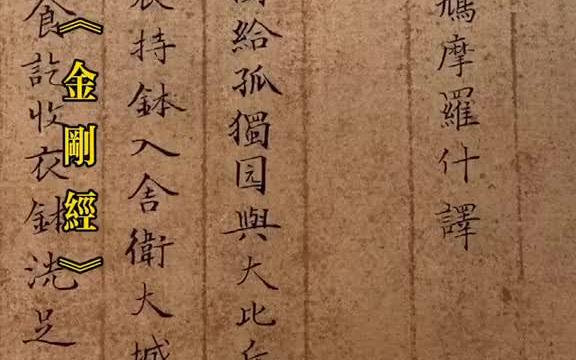 鳩摩羅什譯
樹給孤獨园與大比丘
衣持鉢入舍衛大城
食訖收衣鉢洗足
《金剛經》